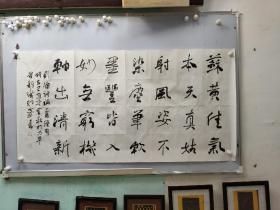 蘇黃佳氣
本天真姑
射風姿不
染塵筆軟
墨豐皆入
妙無窮機
軸出清新